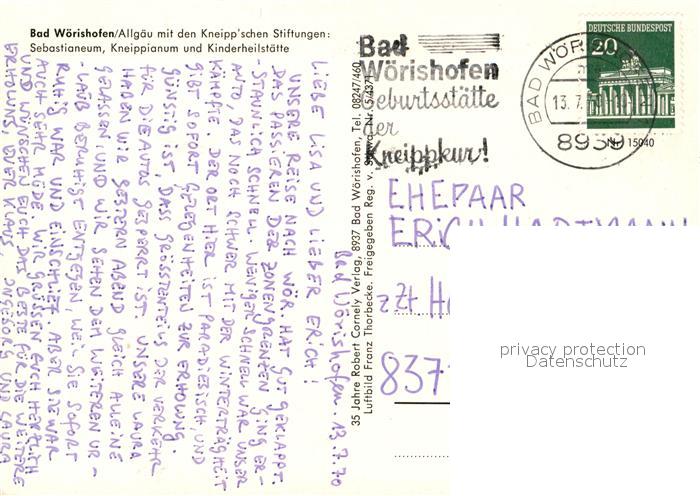 Bad Wörishofen/Allgäu mit den Kneipp'schen Stiftungen:
Sebastianeum, Kneippianum und Kinderheilstätte
Bad Wörishofen. 13.7.70
LIEBE LISA UND LIEBER ERICH!
UNSERE REISE NACH WÖR. HAT GUT GEKLAPPT.
DAS PASSIEREN DER ZONENGRENZEN GING ER-
STAUNLICH SCHNELL. WENIGER SCHNELL WAR UNSER
AUTO, DAS NOCH SCHWER MIT DER WINTERTRÄGHEIT
KÄMPFTE. DER ORT HIER IST PARADIESISCH, UND
GIBT SOFORT GELEGENHEITEN ZUR ERHOLUNG.
GÜNSTIG IST, DASS GRÖSSTENTEILS DER VERKEHR
FÜR DIE AUTOS GESPERRT IST. UNSERE LAURA
HABEN WIR GESTERN ABEND GLEICH ALLEINE
GELASSEN, UND WIR SEHEN DEM WEITEREN UR-
LAUB BERUHIGT ENTGEGEN, WEIL SIE SOFORT
RUHIG WAR UND EINSCHLIEF. ABER SIE WAR
AUCH SEHR MÜDE. WIR GRÜSSEN EUCH HERZLICH
UND WÜNSCHEN EUCH DAS BESTE FÜR DIE WEITERE
ERHOLUNG, EUER KLAUS, UND LAURA
35 Jahre Robert Cornely Verlag, 8937 Bad Wörishofen, Tel. 08247/460
Luftbild Franz Thorbecke. Freigegeben Reg. v.
Bad
Wörishofen
Geburtsstätte
der
Kneippkur!
BAD WÖR
13.7.
8939
DEUTSCHE BUNDESPOST
20
Nr. 15040
EHEPAAR
ERICH HARTMANN
zZt
837
privacy protection
Datenschutz